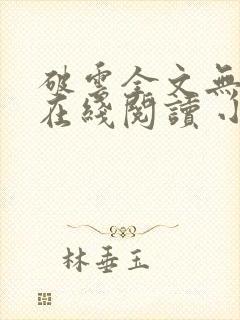 破雲全文無
在綫閱讀小
林垂玉